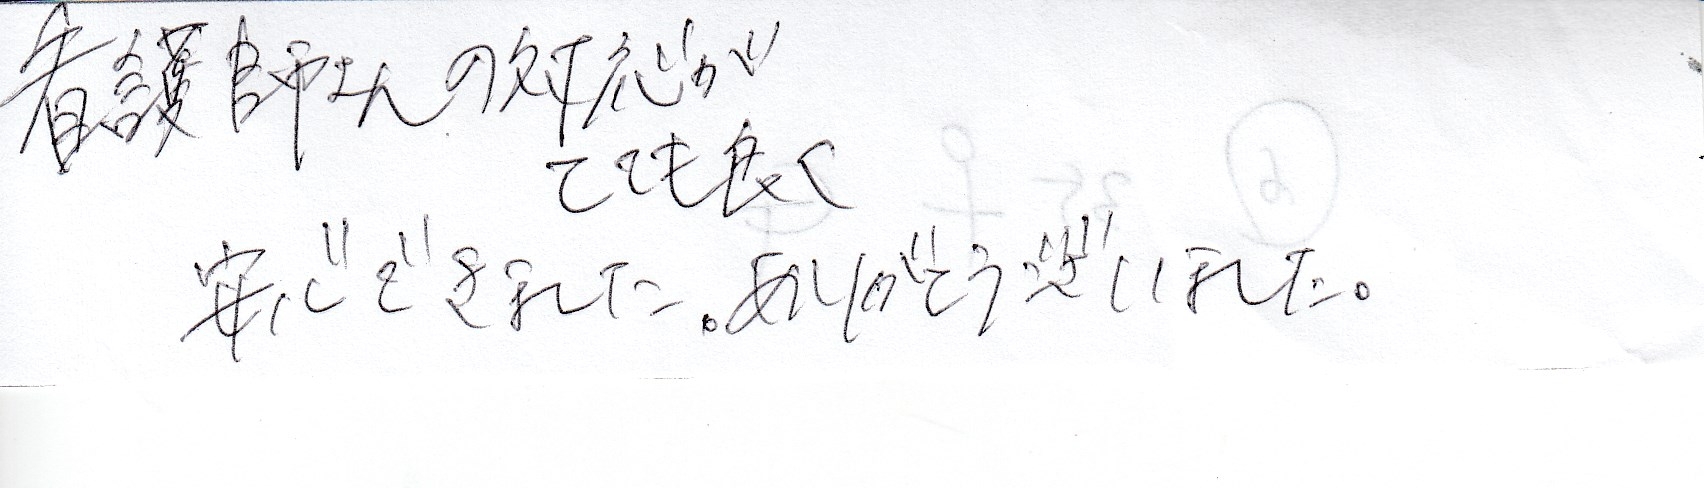 看護師さんの対応が
とても良く
安心できました。ありがとうございました。